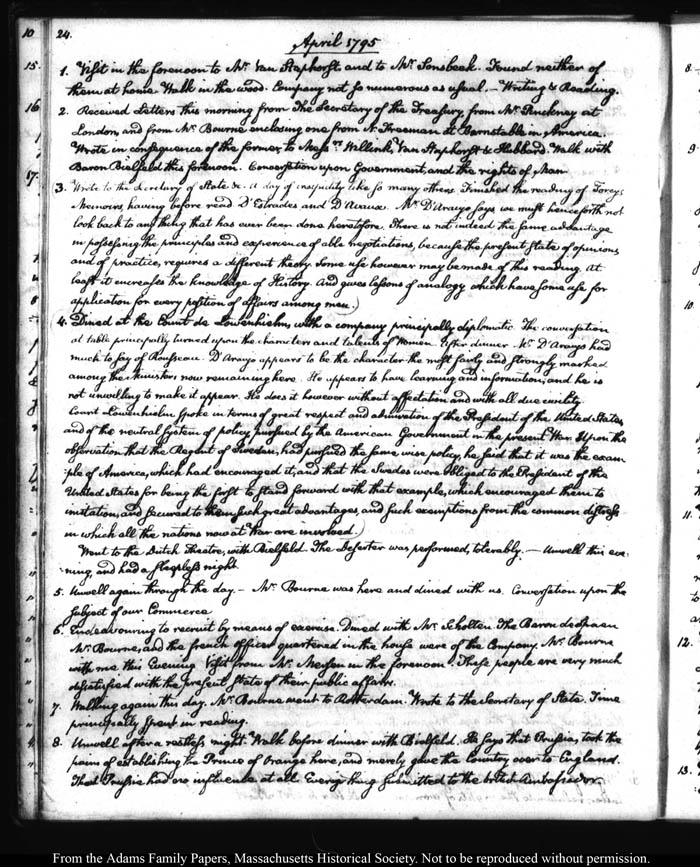 10
24.
April 1795
15
1. Visit in the forenoon to Mr. Van Staphorst and to Mr. Sonsbeek. Found neither of
them at home. Walk in the wood. Company not so numerous as usual. — Writing & Reading.
16
2. Received Letters this morning from the Secretary of the Treasury, from Mr. Pinckney at
London, and from Mr. Bourne enclosing one from N. Freeman at Barnstable in America.
Wrote in consequence of the former to Messrs. Willink, Van Staphorst & Hubbard. Walk with
Baron Bielfeld this forenoon. Conversation upon Government, and the rights of Man.
17.
3. Wrote to the Secretary of State &c. A day of insipidity like so many others. Finished the reading of Torcy's
Memoirs, having before read D'Estrades and D'Avaux. Mr. D'Araujo says we must henceforth not
look back to any thing that has ever been done heretofore. There is not indeed the same advantage
in possessing the principles and experience of able negotiations, because the present State of opinions,
and of practice, requires a different theory. Some use however may be made of this reading. At
least it encreases the knowledge of History. And gives lessons of analogy which have some use for
application for every position of affairs among men.)
(4. Dined at the Count de Löwenhielm, with a company principally diplomatic. The conversation
at table principally turned upon the characters and talents of Women. After dinner Mr. D'Araujo had
much to say of Rousseau. D'Araujo appears to be the character the most fairly and strongly marked
among the Ministers now remaining here. He appears to have learning and information, and he is
not unwilling to make it appear. He does it however without affectation and with all due civility.
Count Löwenhielm spoke in terms of great respect and admiration of the President of the United States,
and of the neutral system of policy pursued by the American Government in the present War. Upon the
observation that the Regent of Sweden, had pursued the same wise policy, he said that it was the exam-
ple of America, which had encouraged it, and that the Swedes were obliged to the President of the
United States for being the first to stand forward with that example, which encouraged them to
imitation, and secured to them such great advantages, and such exemptions from the common distress
in which all the nations now at War are involved.)
Went to the Dutch Theatre, with Bielfeld. The Deserter was performed, tolerably. — Unwell this eve-
ning, and had a sleepless night.
5. Unwell again through the day. — Mr. Bourne was here and dined with us. Conversation upon the
subject of our Commerce.
6. Endeavouring to recruit by means of exercise. Dined with Mr. Scholten. The Baron de Spaen
Mr. Bourne, and the french officer quartered in the house were of the Company. Mr. Bourne
with me this Evening. Visit from Mr. in the forenoon. These people are very much
dissatisfied with the present State of their public affairs.
7. Walking again this day. Mr. Bourne went to Rotterdam. Wrote to the Secretary of State. Time
principally spent in reading.
8. Unwell after a restless night. Walk before dinner with Bielfeld. He says that Prussia, took the
pains of establishing the Prince of Orange here, and merely gave the Country over to England.
That Prussia had no influence at all. Every thing submitted to the british Ambassador.
8.
9.
10.
11.
12.
13.
From the Adams Family Papers, Massachusetts Historical Society. Not to be reproduced without permission.